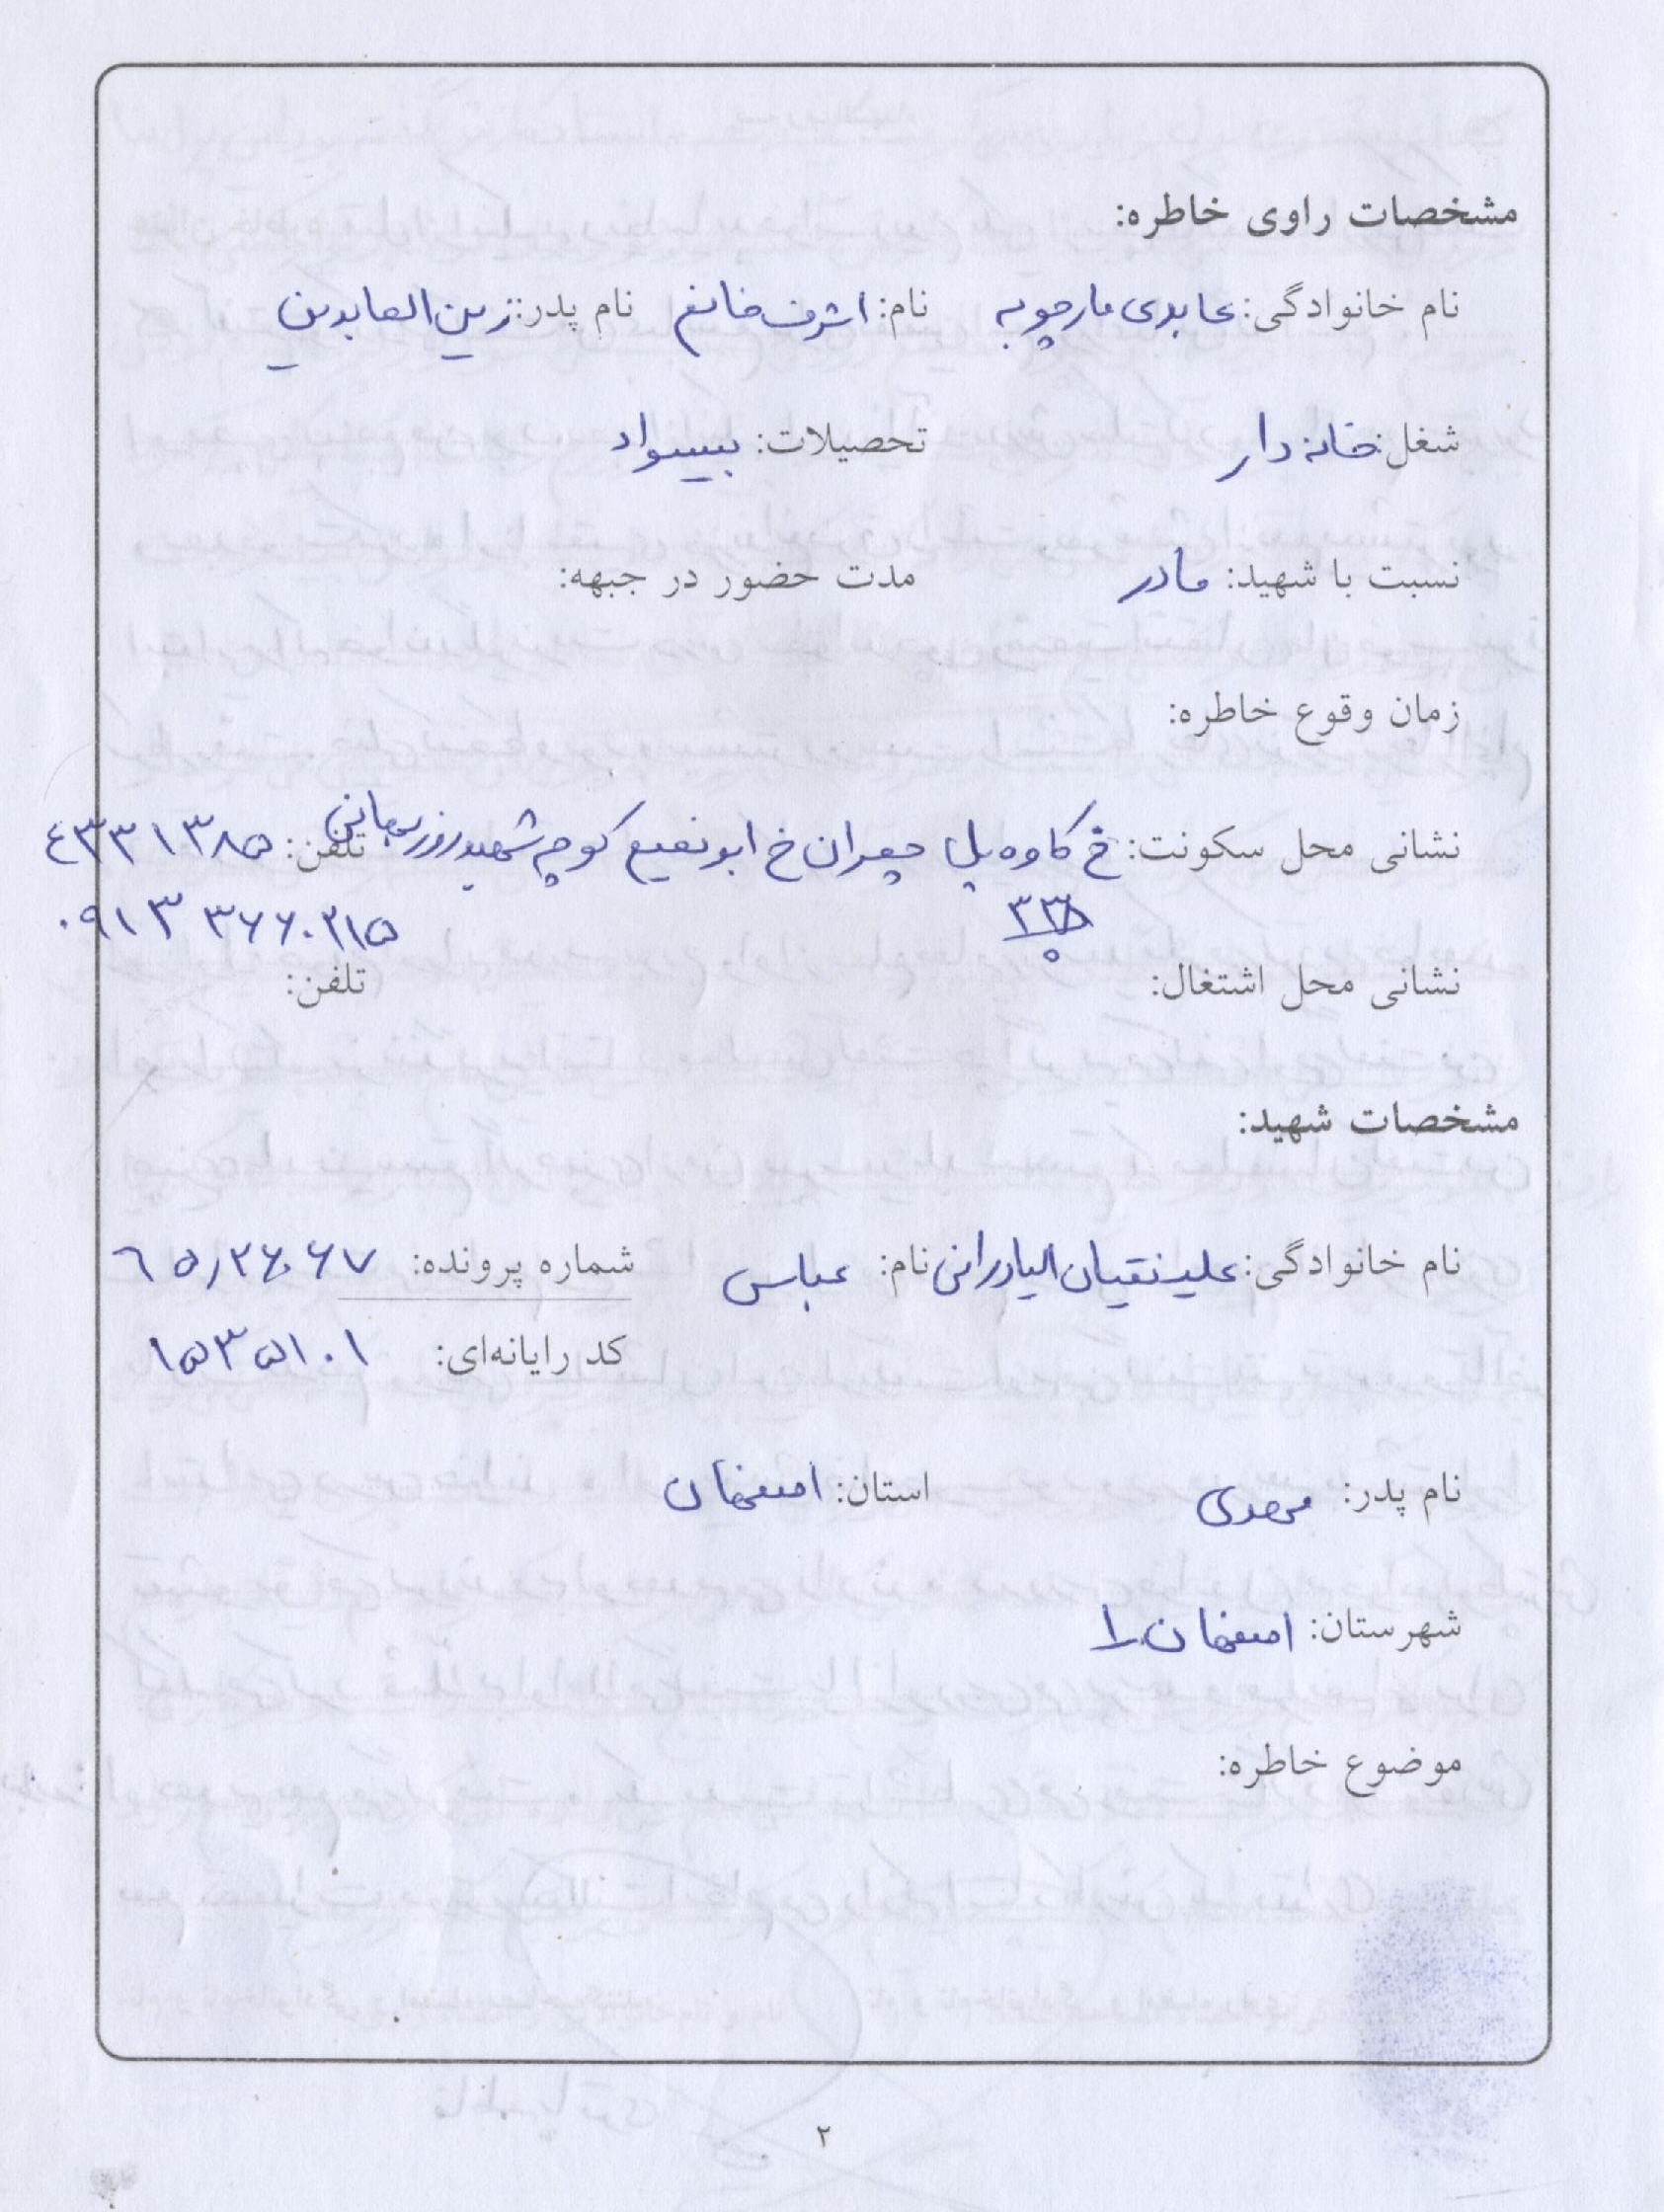 مشخصات راوی خاطره:
نام خانوادگی: عابدی مارچوبه نام: اشرف خانم نام پدر: زین العابدین
شغل: خانه دار تحصیلات: بیسواد
نسبت با شهید: مادر مدت حضور در جبهه:
زمان وقوع خاطره:
نشانی محل سکونت: خ کاوه پل چمران خ ابونعیم کوچه شهید روزبهانی تلفن: ۴۳۳۱۳۸۵
۰۹۱۳ ۳۶۶۰۲۱۵
نشانی محل اشتغال: تلفن:
مشخصات شهید:
نام خانوادگی: علینقیان الیادرانی نام: عباس شماره پرونده: ۶۵٫۲۶۰۶۷
کد رایانه‌ای: ۱۵۳۵۱۰۱
نام پدر: مهدی استان: اصفهان
شهرستان: اصفهان ۱
موضوع خاطره:
۲